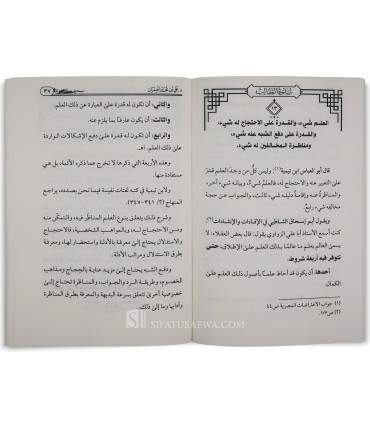 ١٣
العلم شيء، والقدرة على الاحتجاج له شيء،
والقدرة على دفع الشبه عنه شيء،
ومناظرة المخالفين له شيء
قال أبو العباس ابن تيمية(١): وليس كل من وجد العلم قدر
على التعبير عنه والاحتجاج له، فالعلم شيء، وبيانه شيء آخر،
والمناظرة عنه وإقامة دليله شيء ثالث، والجواب عن حجة
مخالفه شيء رابع.
ويقول أبو إسحاق الشاطبي في الإفادات والإنشادات(٢):
كنت أسمع الأستاذ أبا علي الزواوي يقول: قال بعض العقلاء: لا
يسمى العالم بعلم ما عالمًا بذلك العلم على الإطلاق، حتى
تتوفر فيه أربعة شروط:
أحدها: أن يكون قد أحاط علمًا بأصول ذلك العلم على
الكمال.
(١) جواب الاعتراضات المصرية ص٤٤.
(٢) ص١٧٧
٣٧
والثاني: أن تكون له قدرة على العبارة عن ذلك العلم.
والثالث: أن يكون عارفًا بما يلزم عنه.
والرابع: أن تكون له قدرة على دفع الإشكالات الواردة
على ذلك العلم. اهـ
وهذه الأربعة التي ذكرها لا تخرج عما ذكره الأئمة، بل هي
مستفادة منها.
ولابن تيمية في كتبه لفتات نفيسة فيما نحن بصدده، يراجع
المنهاج (٢/ ٣٤١-٣٤٧).
وشرح ذلك يتعلق بنوع العلم المناظر فيه، والتمكن منه
ومن المسائل، والمذاهب الشخصية، فالاحتجاج
والاستدلال يحتاج إلى معرفة بالأدلة واستحضار لها، ومعرفة
بطرق الاستدلال ومراتب الأدلة.
ودفع الشبه يحتاج إلى مزيد عناية بالحجاج ومذاهب
الخصوم، وطريقة الرد والجواب، والمناظرة تحتاج إلى
خصوصية أخرى تتعلق بسرعة البديهة والمعرفة بطرق المناظرة
وآدابها.
SIFATUSAFWA.COM